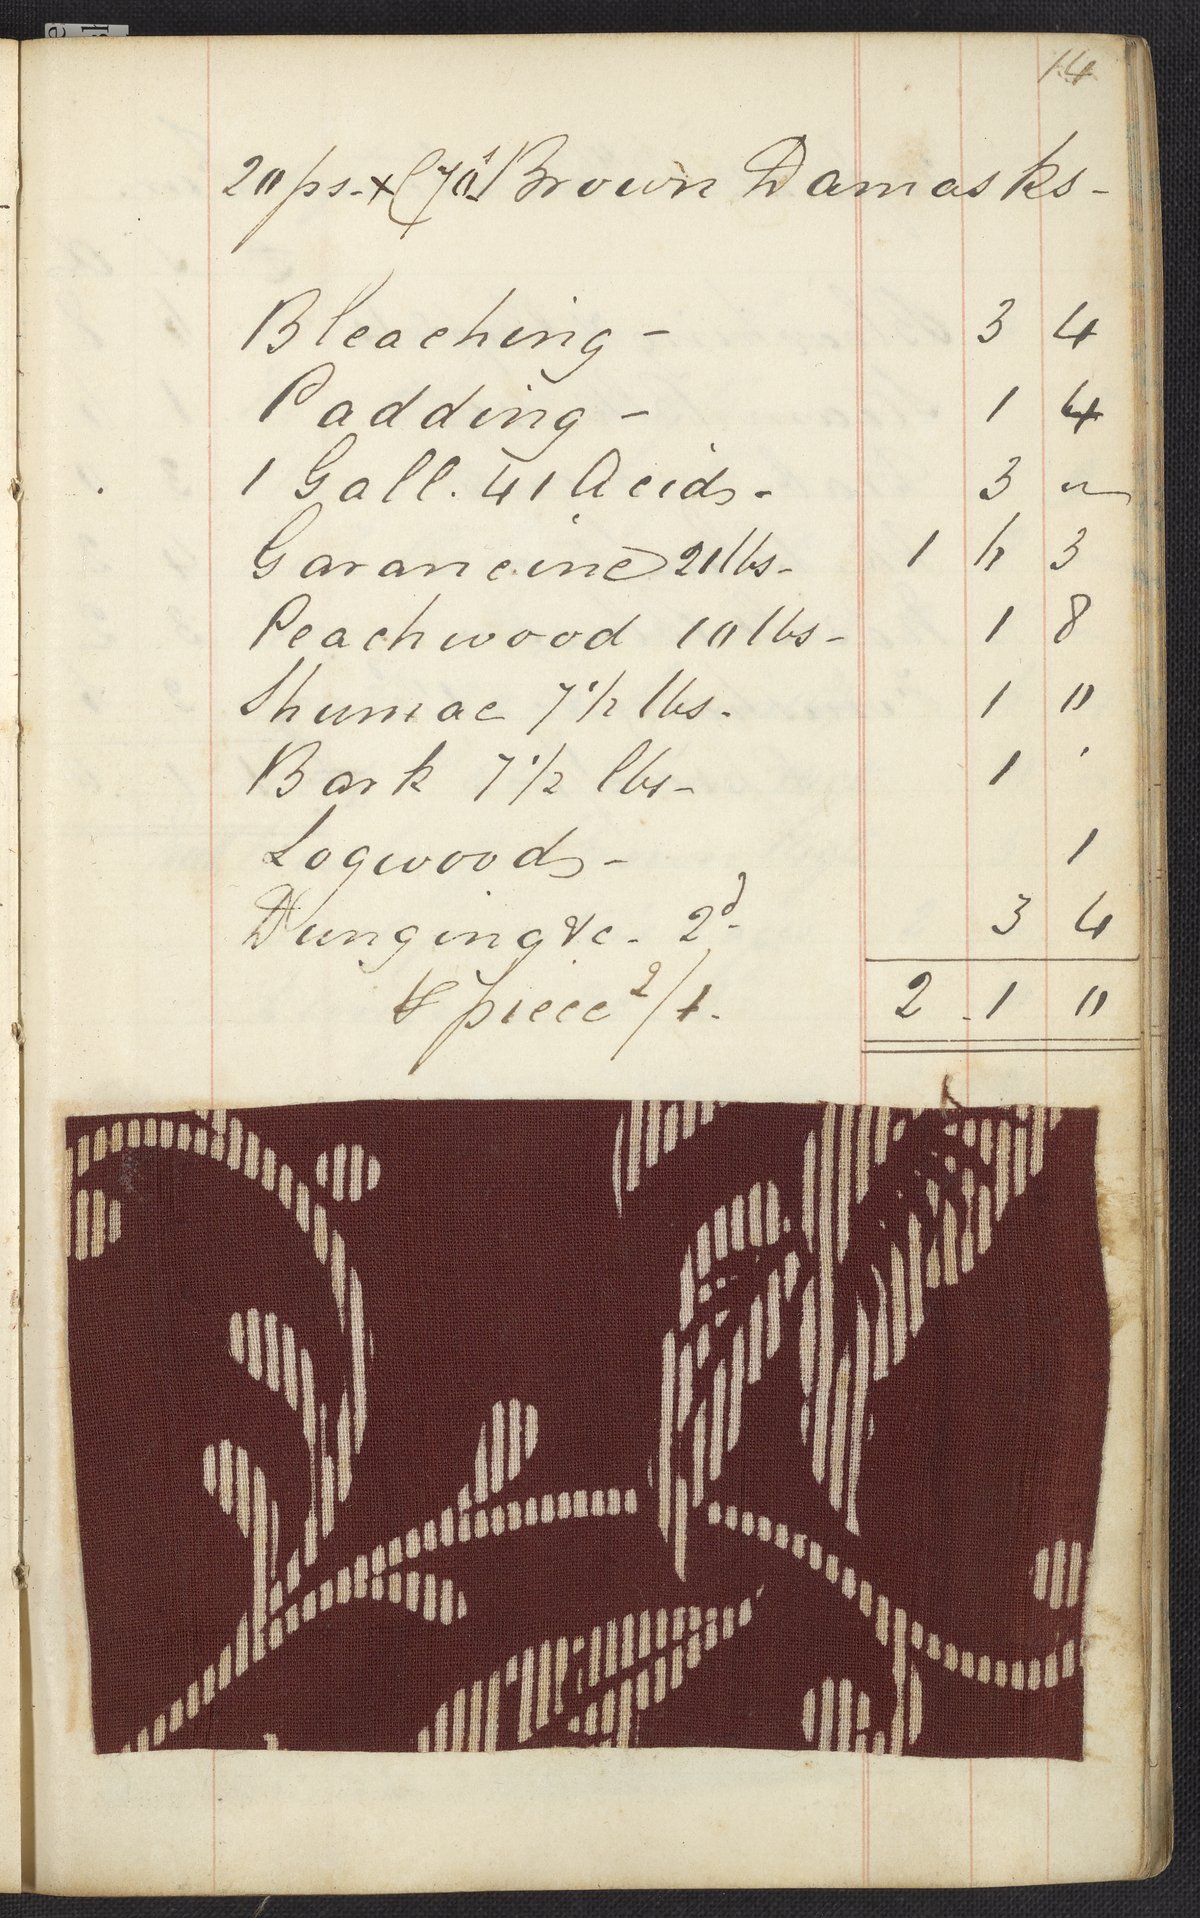 14
20 ps. x (70s) Brown Damasks -
Bleaching - 3 4
Padding - 1 4
1 Gall. 41 Acids - 3 "
Garancine 21 lbs - 1 6 3
Peachwood 10 lbs - 1 8
Shumac 7 1/2 lbs. 1 "
Bark 7 1/2 lbs - 1 "
Logwoods - 1
Dunging &c. 2d. 3 4
⅌ piece 2/1. 2 . 1 "